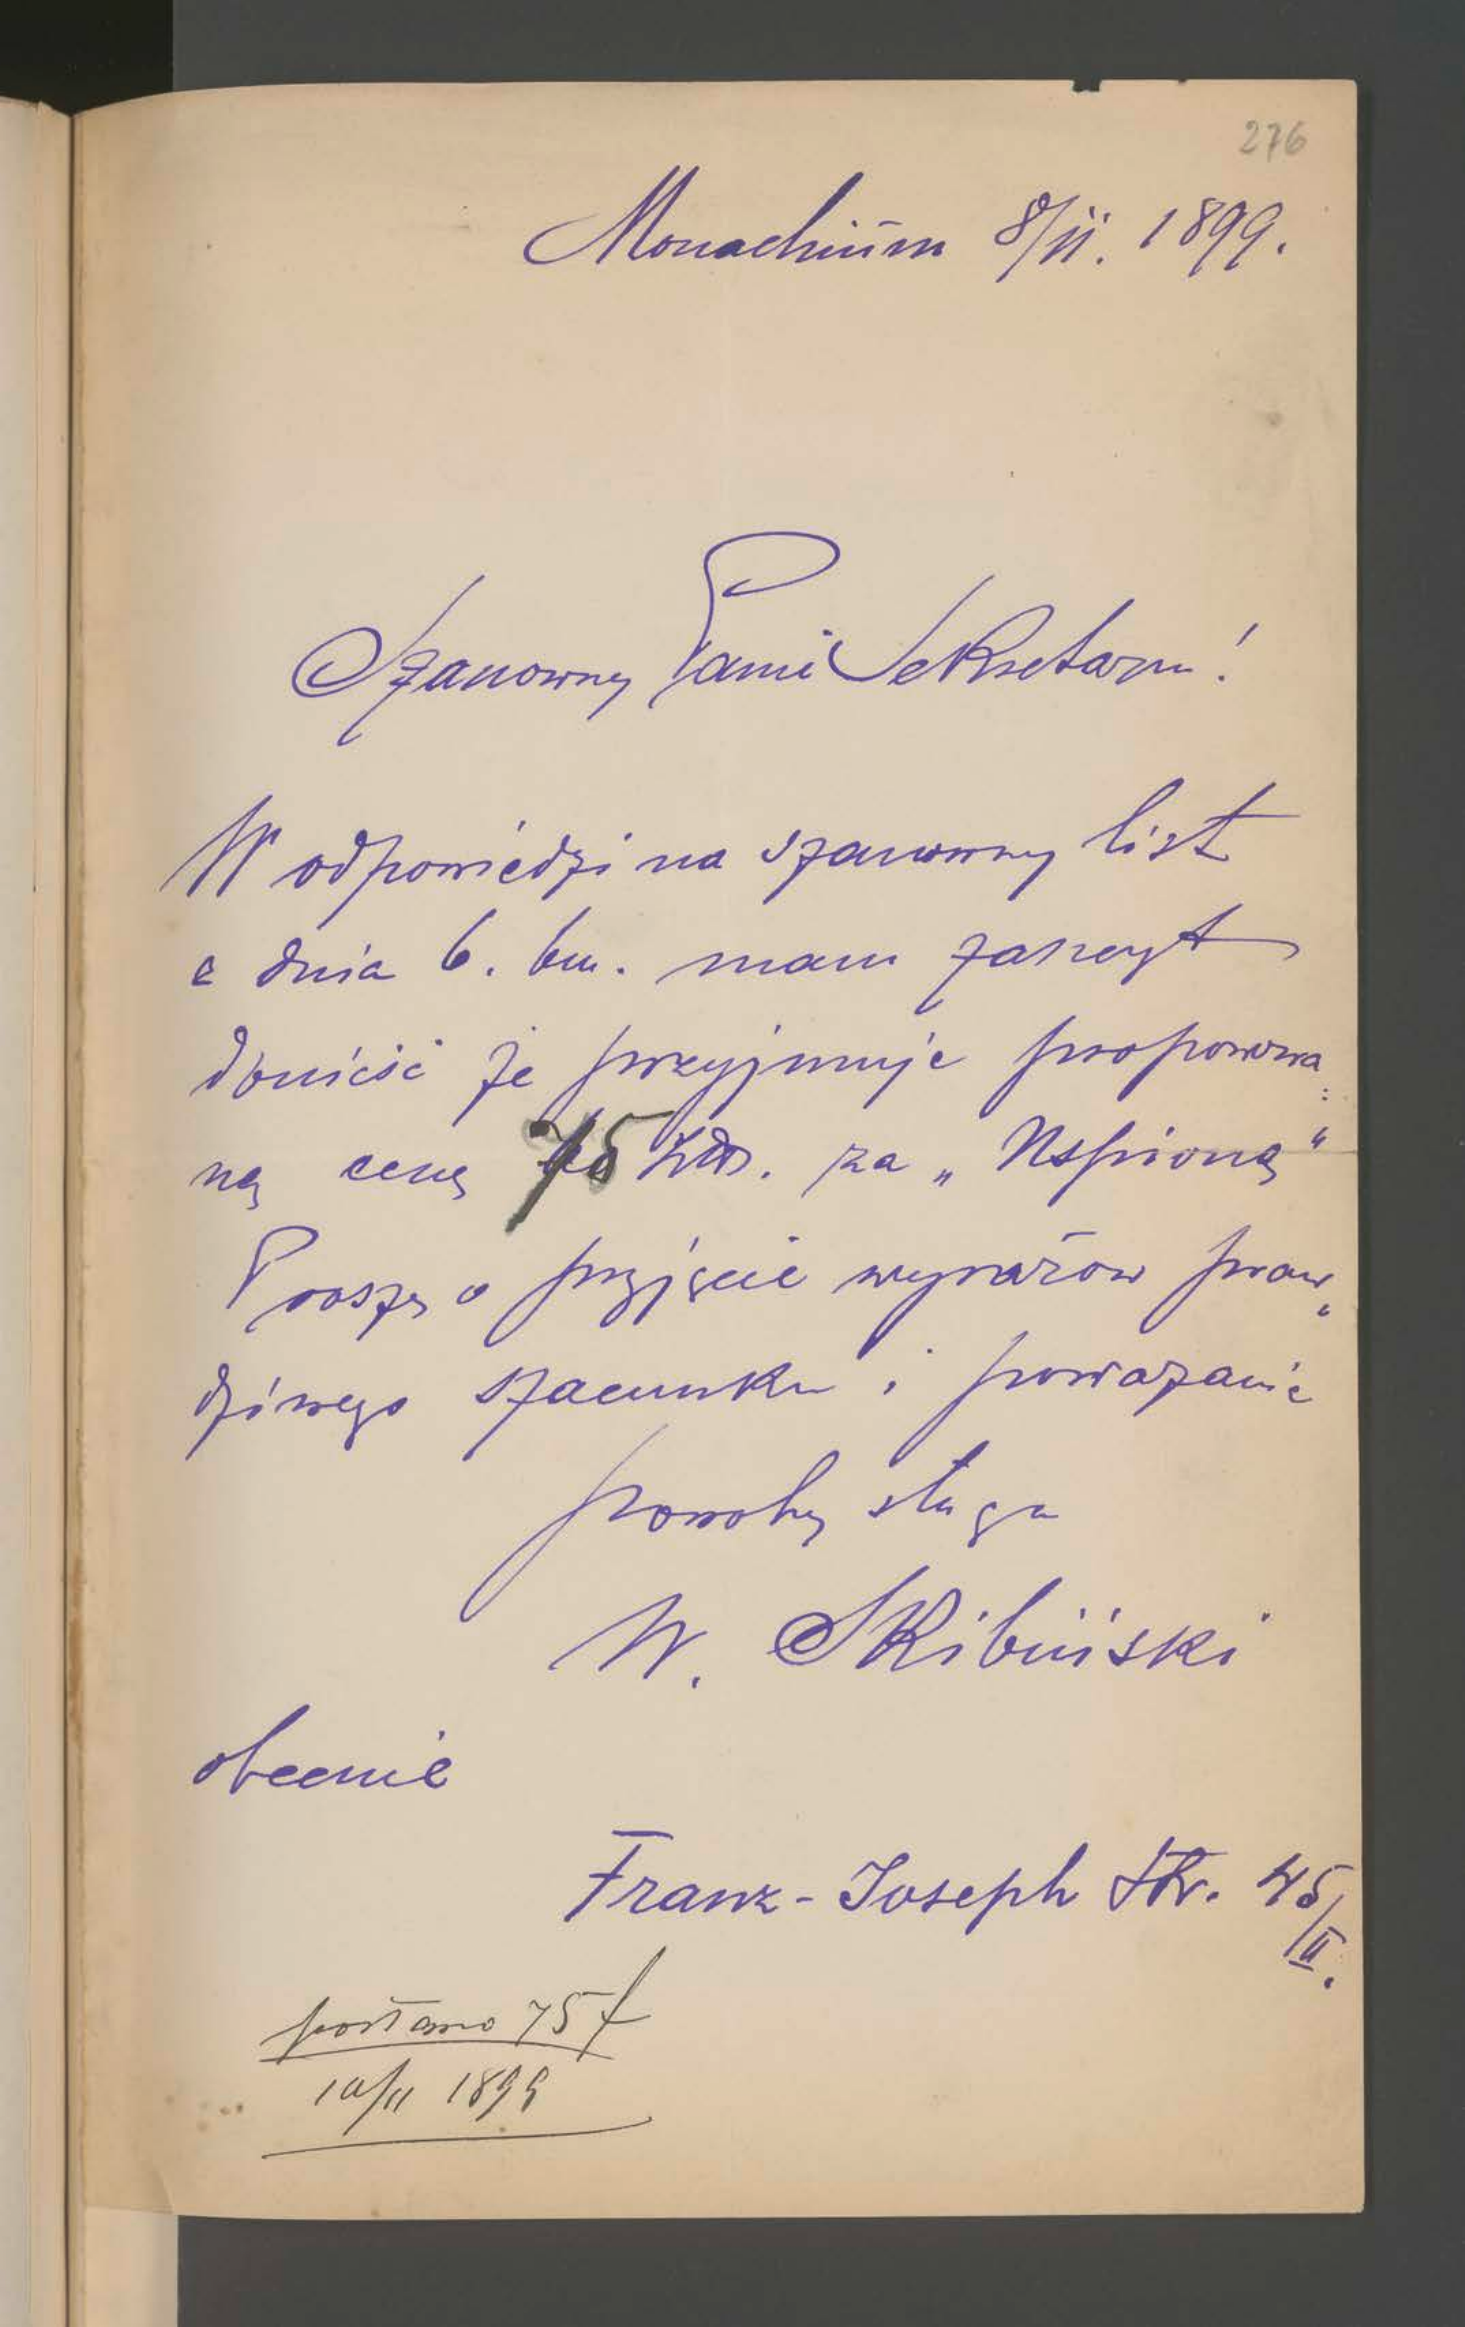 276
Monachium 8/II. 1899.
Szanowny Panie Sekretarzu!
W odpowiedzi na szanowny list
z dnia 6. bm. mam zaszczyt
donieść że przyjmuję proponowa=
ną cenę 75 złr. za „Uśpioną“
Proszę o przyjęcie wyrazów praw„
dziwego szacunku i poważanie
powolny sługa
W. Skibiński
obecnie
Franz-Joseph Str. 45/II.
posłano 75 f
10/II 1899